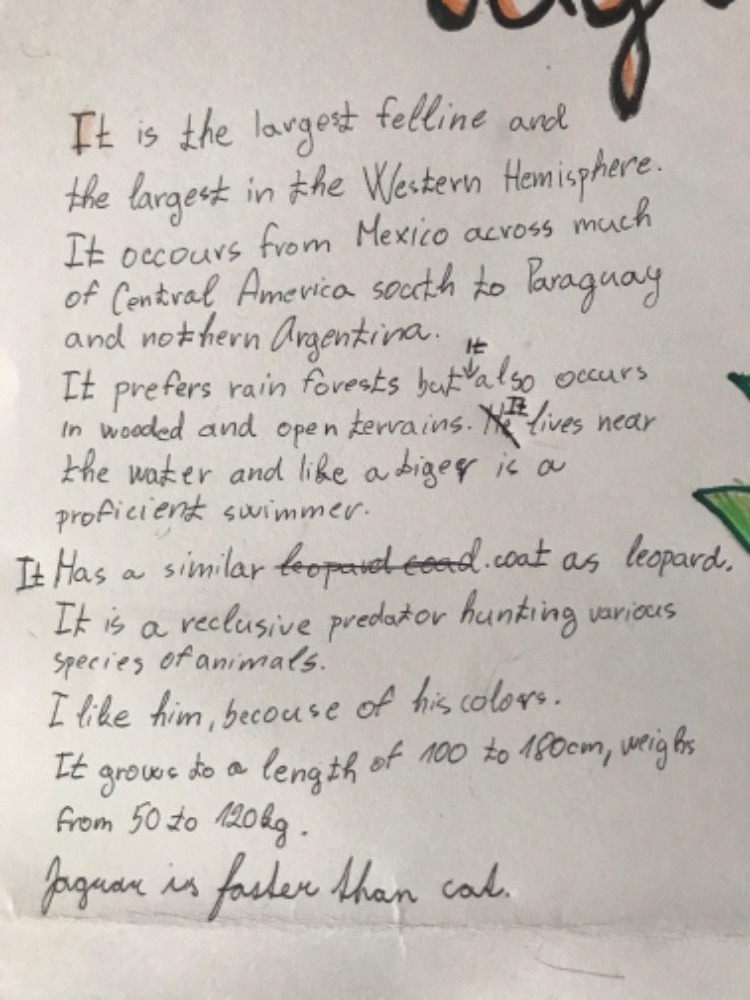 It is the largest felline and
the largest in the Western Hemisphere.
It occours from Mexico across much
of Central America south to Paraguay
and nothern Argentina.
It prefers rain forests but It also occurs
in wooded and open terrains. He It lives near
the water and like a tiger is a
proficient swimmer.
It Has a similar leopard coad. coat as leopard.
It is a reclusive predator hunting various
species of animals.
I like him, becouse of his colors.
It grows to a length of 100 to 180cm, weighs
from 50 to 120kg.
Jaguar is faster than cat.